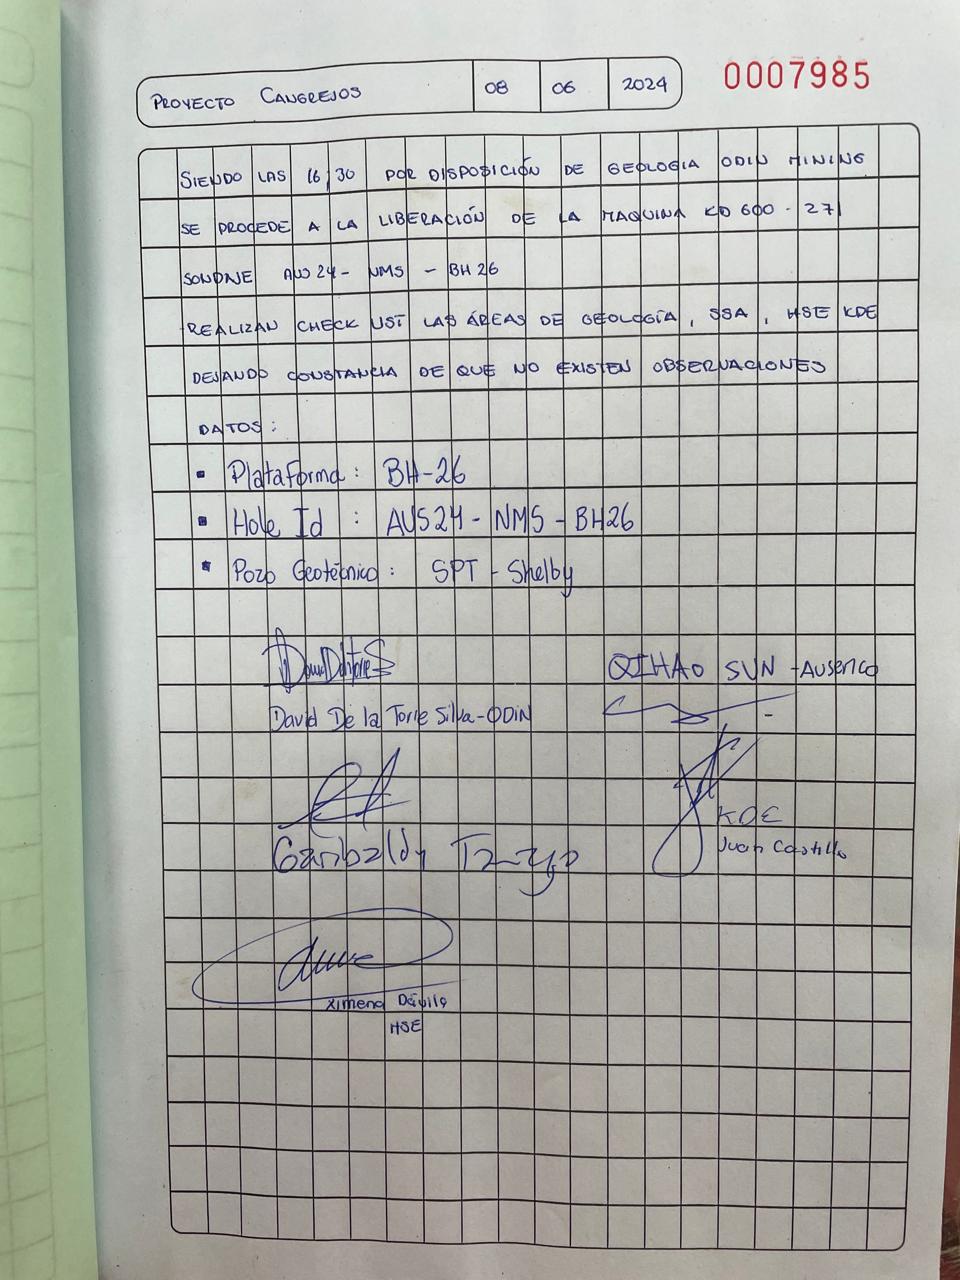 PROYECTO CANGREJOS 08 06 2024 0007985
SIENDO LAS 16:30 POR DISPOSICIÓN DE GEOLOGIA ODIN MINING
SE PROCEDE A LA LIBERACIÓN DE LA MAQUINA KD 600 - 271
SONDAJE AUS24 - NMS - BH26
REALIZAN CHECK LIST LAS ÁREAS DE GEOLOGÍA, SSA, HSE KDE
DEJANDO CONSTANCIA DE QUE NO EXISTEN OBSERVACIONES
DATOS:
▪ Plataforma: BH-26
▪ Hole Id : AUS24 - NMS - BH26
▪ Pozo Geotécnico: SPT - Shelby
QIHAO SUN - Ausenco
David De la Torre Silva - ODIN
KDE
Juan Castillo
Garibaldy
Ximena Dávila
HSE